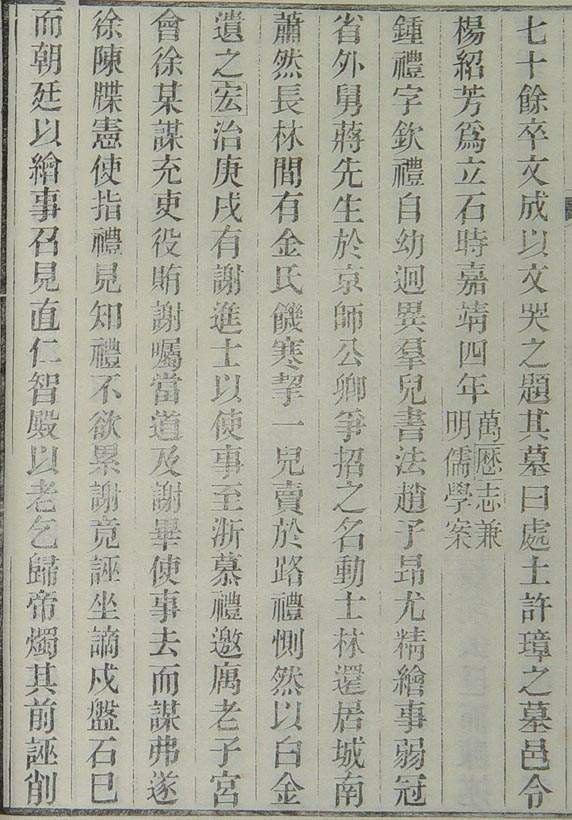 七十餘卒文成以文哭之題其墓曰處士許璋之墓邑令
楊紹芳爲立石時嘉靖四年萬厯志兼
明儒學案
鍾禮字欽禮自幼迥異羣兒書法趙子昻尤精繪事弱冠
省外舅蔣先生於京師公卿爭招之名動士林還居城南
蕭然長林間有金氏饑寒挈一兒賣於路禮惻然以白金
遺之宏治庚戌有謝進士以使事至浙慕禮邀廌老子宮
會徐某謀充吏役賄謝囑當道及謝畢使事去而謀弗遂
徐陳牒憲使指禮見知禮不欲累謝竟誣坐謫戍盤石巳
而朝廷以繪事召見直仁智殿以老乞歸帝燭其前誣削